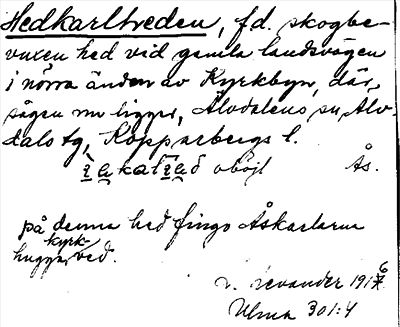 Hedkarltreden, f.d. skogbe-
vuxen hed vid gamla landsvägen
i norra änden av Kyrkbyn, där
sågen nu ligger, Älvdalens sn, Älv-
dals tg, Kopparbergs l.
oböjl Ås.
på denna hed fingo Åskarlarna
hugga kyrkved.
L. Levander 1916
Ulma 301:4